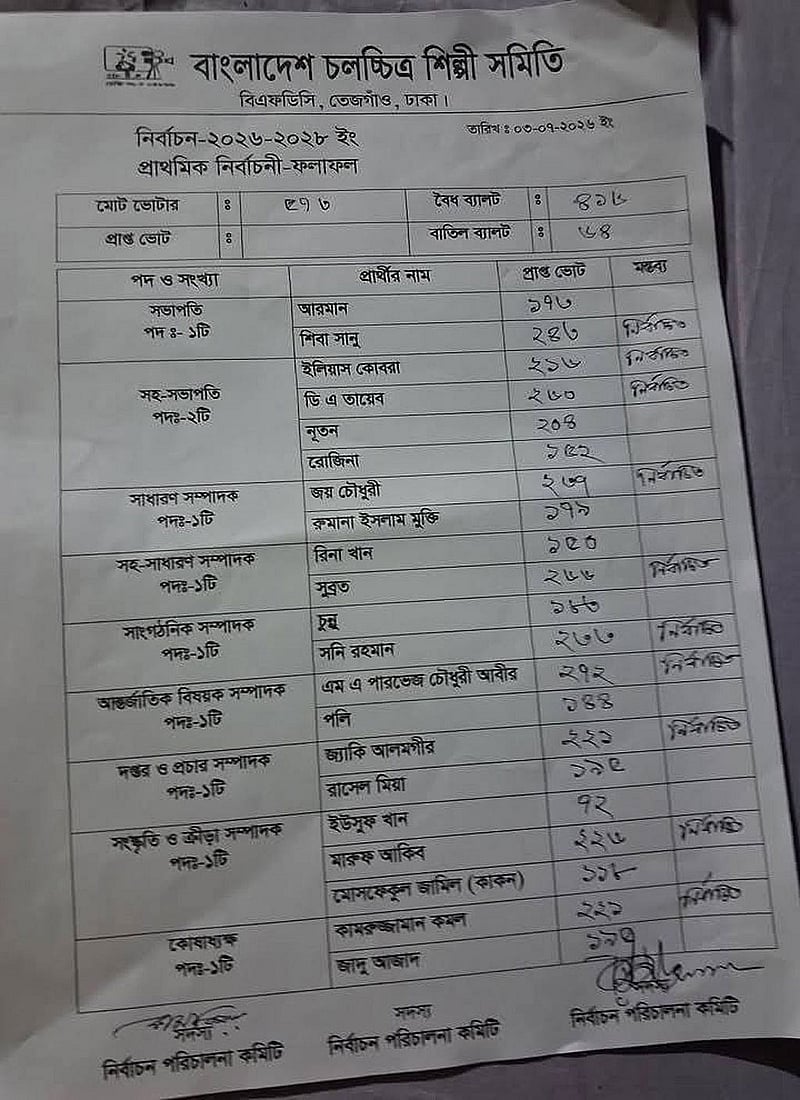 বাংলাদেশ চলচ্চিত্র শিল্পী সমিতি
বিএফডিসি, তেজগাঁও, ঢাকা।
তারিখ ঃ ০৩-০৭-২০২৬ ইং
নির্বাচন-২০২৬-২০২৮ ইং
প্রাথমিক নির্বাচনী-ফলাফল
মোট ভোটার ঃ ৫৭৩ বৈধ ব্যালট ঃ ৪১৬
প্রাপ্ত ভোট ঃ বাতিল ব্যালট ঃ ৬৪
পদ ও সংখ্যা প্রার্থীর নাম প্রাপ্ত ভোট মন্তব্য
সভাপতি
পদ ঃ- ১টি
আরমান ১৭৩
শিবা সানু ২৪৩ নির্বাচিত
সহ-সভাপতি
পদঃ-২টি
ইলিয়াস কোবরা ২১৬ নির্বাচিত
ডি এ তায়েব ২৬০ নির্বাচিত
নূতন ২০৪
রোজিনা ১৫২
সাধারণ সম্পাদক
পদঃ-১টি
জয় চৌধুরী ২৩৭ নির্বাচিত
রুমানা ইসলাম মুক্তি ১৭৯
সহ-সাধারণ সম্পাদক
পদঃ-১টি
রিনা খান ১৫০
সুব্রত ২৬৬ নির্বাচিত
সাংগঠনিক সম্পাদক
পদঃ-১টি
টুন্নু ১৮৩
সনি রহমান ২৩৩ নির্বাচিত
আন্তর্জাতিক বিষয়ক সম্পাদক
পদঃ-১টি
এম এ পারভেজ চৌধুরী আবীর ২৭২ নির্বাচিত
পলি ১৪৪
দপ্তর ও প্রচার সম্পাদক
পদঃ-১টি
জ্যাকি আলমগীর ২২১ নির্বাচিত
রাসেল মিয়া ১৯৫
সংস্কৃতি ও ক্রীড়া সম্পাদক
পদঃ-১টি
ইউসুফ খান ৭২
মারুফ আকিব ২২৬ নির্বাচিত
মোসফেকুল জামিল (কাকন) ১১৮
কোষাধ্যক্ষ
পদঃ-১টি
কামরুজ্জামান কমল ২২১ নির্বাচিত
জাদু আজাদ
সদস্য
নির্বাচন পরিচালনা কমিটি
সদস্য
নির্বাচন পরিচালনা কমিটি
নির্বাচন পরিচালনা কমিটি